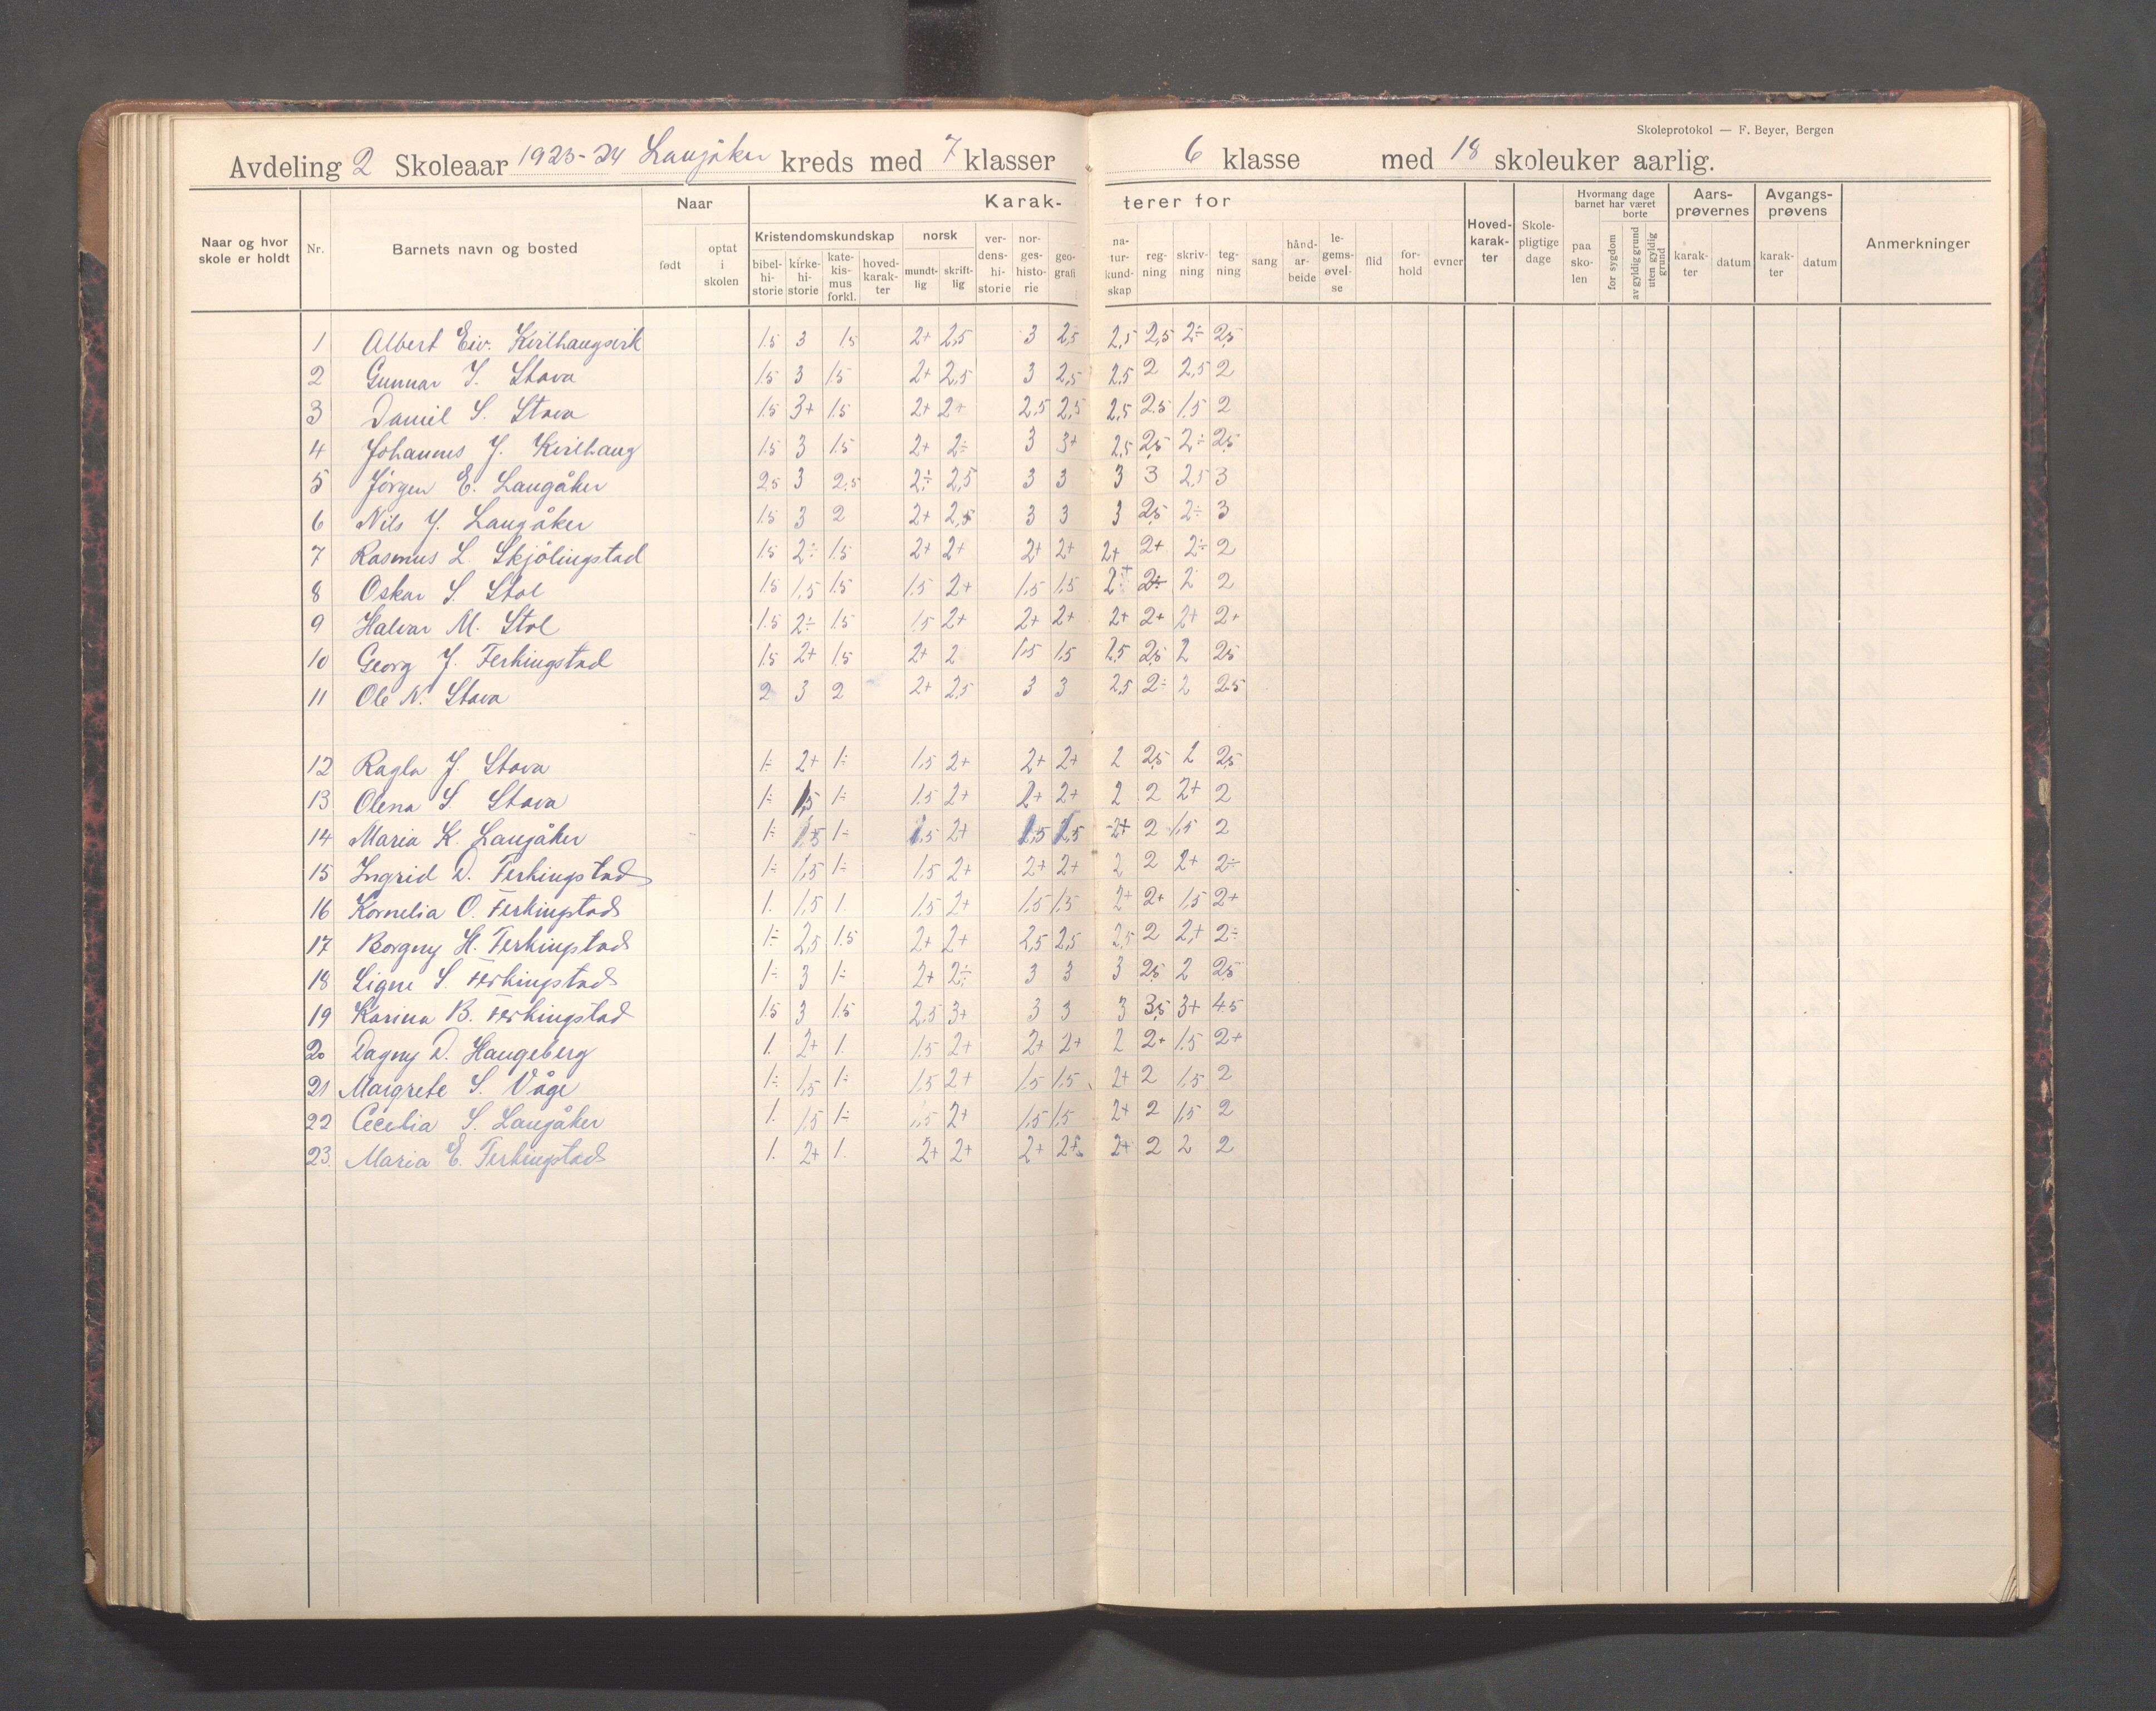 Skoleprotokol — F. Beyer, Bergen
Avdeling 2 Skoleaar 1923-24 Langåker kreds med 7 klasser 6 klasse med 18 skoleuker aarlig.
Naar og hvor skole er holdt Nr. Barnets navn og bosted Naar født optat i skolen Karak- terer for Kristendomskundskap bibel-hi-storie kirke-hi-storie kate-kis-mus forkl. hoved-karak-ter norsk mundt-lig skrift-lig ver-dens-hi-storie nor-ges-histo-rie geo-grafi na-tur-kund-skap reg-ning skriv-ning teg-ning sang hånd-ar-beide le-gems-øvel-se flid for-hold evner Hoved-karak-ter Skole-pligtige dage Hvormang dage barnet har været paa sko-len borte for sygdom av gyldig grund uten gyldig grund Aars-prøvernes karak-ter datum Avgangs-prøvens karak-ter datum Anmerkninger
1 Albert Eiv. 1.5 3 1.5 2+ 2,5 3 2,5 2,5 2,5 2÷ 2,5
2 Gunnar J. Stava 1.5 3 1.5 2+ 2,5 3 2,5 2,5 2 2,5 2
3 Daniel S. Stava 1.5 3+ 1.5 2+ 2+ 2,5 2,5 2,5 2,5 1,5 2
4 Johannes J. Kirlhaug 1.5 3 1.5 2+ 2÷ 3 3+ 2,5 2,5 2÷ 2,5
5 Jörgen E. Langåker 2,5 3 2,5 2÷ 2,5 3 3 3 3 2,5 3
6 Nils J. Langåker 1.5 3 2 2+ 2,5 3 3 3 2,5 2÷ 3
7 Rasmus L. Skjölingstad 1.5 2÷ 1.5 2+ 2+ 2+ 2+ 2+ 2+ 2÷ 2
8 Oskar S. Stol 1.5 1,5 1.5 1.5 2+ 1.5 1.5 2+ 2÷ 2 2
9 Halvar M. Stol 1.5 2÷ 1.5 1.5 2+ 2+ 2+ 2+ 2+ 2+ 2+
10 Georg J. Ferkingstad 1.5 2+ 1.5 2+ 2 1.5 1.5 2,5 2,5 2 2,5
11 Ole N. Stava 2 3 2 2+ 2,5 3 3 2,5 2÷ 2 2,5
12 Ragla J. Stava 1÷ 2+ 1÷ 1.5 2+ 2+ 2+ 2 2,5 2 2,5
13 Olena S. Stava 1÷ 1,5 1÷ 1.5 2+ 2+ 2+ 2 2 2+ 2
14 Maria K. Langåker 1÷ 1,5 1÷ 1,5 2+ 1,5 1,5 2+ 2 1,5 2
15 Ingrid D. Ferkingstad 1÷ 1,5 1÷ 1,5 2+ 2+ 2+ 2 2 2+ 2÷
16 Kornelia O. Ferkingstad 1. 1,5 1. 1.5 2+ 1.5 1.5 2+ 2+ 1.5 2+
17 Borgny H. Ferkingstad 1÷ 2,5 1.5 2+ 2+ 2,5 2,5 2,5 2 2,+ 2÷
18 Signe S. Ferkingstad 1÷ 3 1÷ 2+ 2÷ 3 3 3 2,5 2 2,5
19 Karina B. Ferkingstad 1.5 3 1.5 2,5 3+ 3 3 3 3,5 3+ 4.5
20 Dagny D. Haugeberg 1. 2+ 1. 1.5 2+ 2+ 2+ 2 2+ 1.5 2+
21 Margrete S. Våge 1÷ 1,5 1÷ 1.5 2+ 1.5 1.5 2+ 2 1.5 2
22 Cecelia S. Langåker 1. 1,5 1÷ 1,5 2+ 1.5 1.5 2+ 2 1,5 2
23. Maria E. Ferkingstad 1. 2+ 1. 2+ 2+ 2+ 2+ 2+ 2 2 2